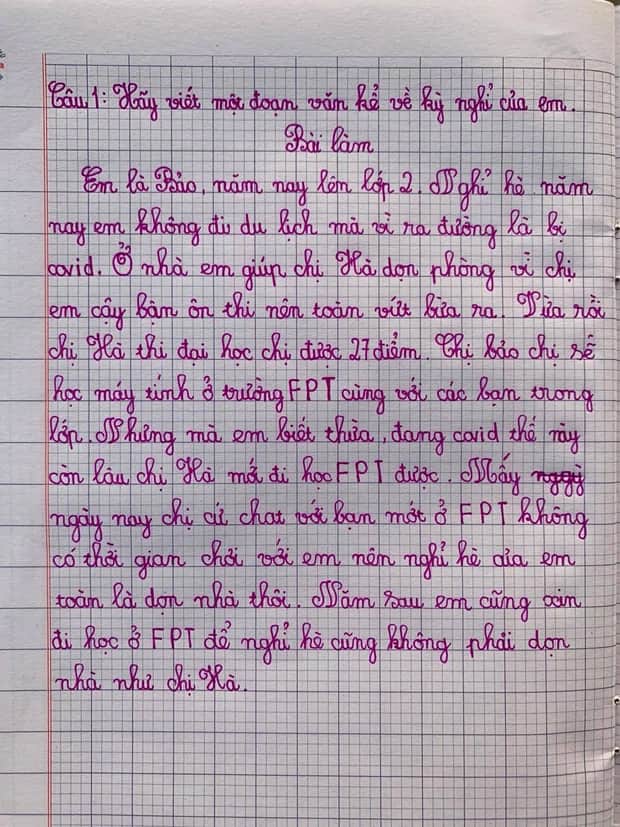 Câu 1: Hãy viết một đoạn văn kể về kỳ nghỉ của em.
Bài làm
Em là Bảo, năm nay lên lớp 2. Nghỉ hè năm
nay em không đi du lịch mà vì ra đường là bị
covid. Ở nhà em giúp chị Hà dọn phòng vì chị
em cậy bận ôn thi nên toàn vứt bừa ra. Vừa rồi
chị Hà thi đại học chị được 27 điểm. Chị bảo chị sẽ
học máy tính ở trường FPT cùng với các bạn trong
lớp. Nhưng mà em biết thừa, đang covid thế này
còn lâu chị Hà mới đi học FPT được. Mấy
ngày nay chị cứ chat với bạn mới ở FPT không
có thời gian chơi với em nên nghỉ hè của em
toàn là dọn nhà thôi. Năm sau em cũng xin
đi học ở FPT để nghỉ hè cũng không phải dọn
nhà như chị Hà.